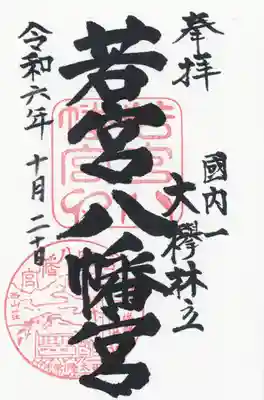 奉拝
國内一
大欅林立
若宮八幡宮
令和六年 十月 二十日